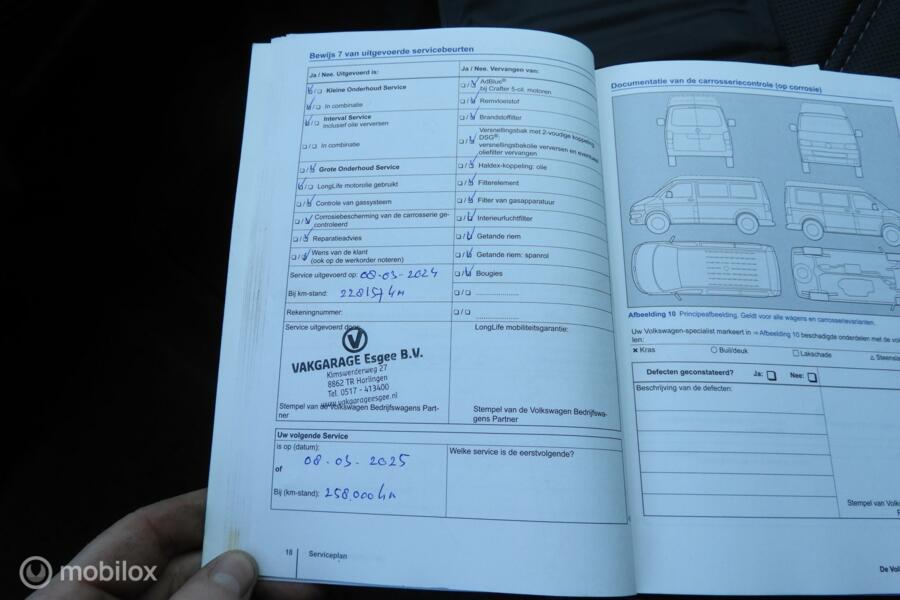 Bewijs 7 van uitgevoerde servicebeurten
Ja / Nee. Uitgevoerd is:
☑/☐ Kleine Onderhoud Service
☑/☐ In combinatie
☑/☐ Interval Service
inclusief olie verversen
☐/☐ In combinatie
☐/☑ Grote Onderhoud Service
☑/☐ LongLife motorolie gebruikt
☐/☑ Controle van gassysteem
☐/☑ Corrosiebescherming van de carrosserie ge-
controleerd
☐/☑ Reparatieadvies
☐/☑ Wens van de klant
(ook op de werkorder noteren)
Service uitgevoerd op: 08-03-2024
Bij km-stand: 228154 km
Rekeningnummer:
Service uitgevoerd door:
VAKGARAGE Esgee B.V.
Kimswerderweg 27
8862 TR Harlingen
Tel. 0517 - 413400
www.vakgarageesgee.nl
Stempel van de Volkswagen Bedrijfswagens Part-
ner
Ja / Nee. Vervangen van:
☐/☑ AdBlue®
bij Crafter 5-cil. motoren
☐/☑ Remvloeistof
☐/☑ Brandstoffilter
☐/☑ Versnellingsbak met 2-voudige koppeling
DSG®:
versnellingsbakolie verversen en eventueel
oliefilter vervangen
☐/☑ Haldex-koppeling: olie
☐/☑ Filterelement
☐/☑ Filter van gasapparatuur
☐/☑ Interieurluchtfilter
☐/☑ Getande riem
☐/☑ Getande riem: spanrol
☐/☑ Bougies
☐/☐ ....................
☐/☐ ....................
LongLife mobiliteitsgarantie:
Stempel van de Volkswagen Bedrijfswa-
gens Partner
Uw volgende Service
is op (datum):
08-03-2025
of
Bij (km-stand): 258.000 km
Welke service is de eerstvolgende?
18 Serviceplan
Documentatie van de carrosseriecontrole (op corrosie)
Afbeelding 10 Principeafbeelding. Geldt voor alle wagens en carrosserievarianten.
Uw Volkswagen-specialist markeert in ⇒ Afbeelding 10 beschadigde onderdelen met de vol
len:
× Kras ○ Buil/deuk □ Lakschade △ Steensla
Defecten geconstateerd? Ja: ☐ Nee: ☐
Beschrijving van de defecten:
Stempel van Volks
De Vol
mobilox